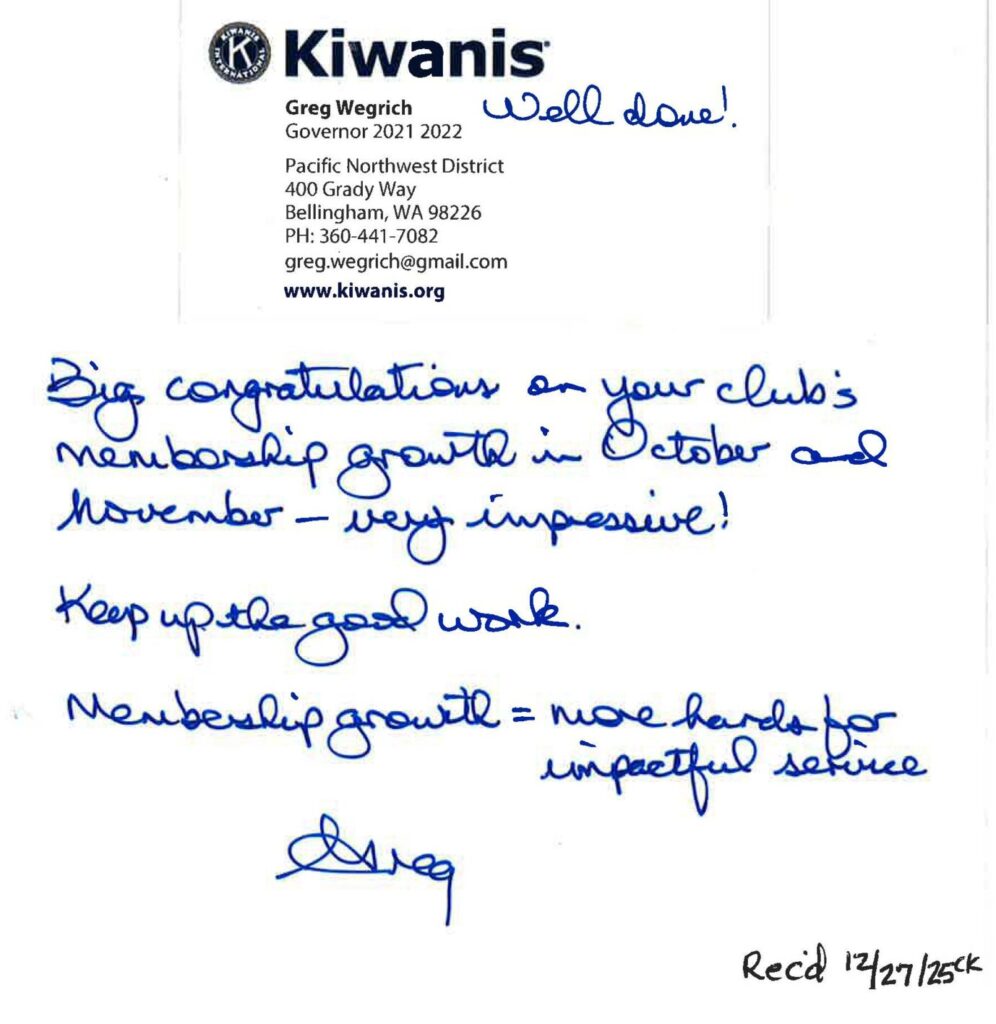 KIWANIS INTERNATIONAL
K
Kiwanis
Greg Wegrich
Well done!
Governor 2021 2022
Pacific Northwest District
400 Grady Way
Bellingham, WA 98226
PH: 360-441-7082
greg.wegrich@gmail.com
www.kiwanis.org
Big congratulations on your club's
membership growth in October and
November – very impressive!
Keep up the good work.
Membership growth = more hands for
impactful service
Greg
Rec'd 12/27/25 CK